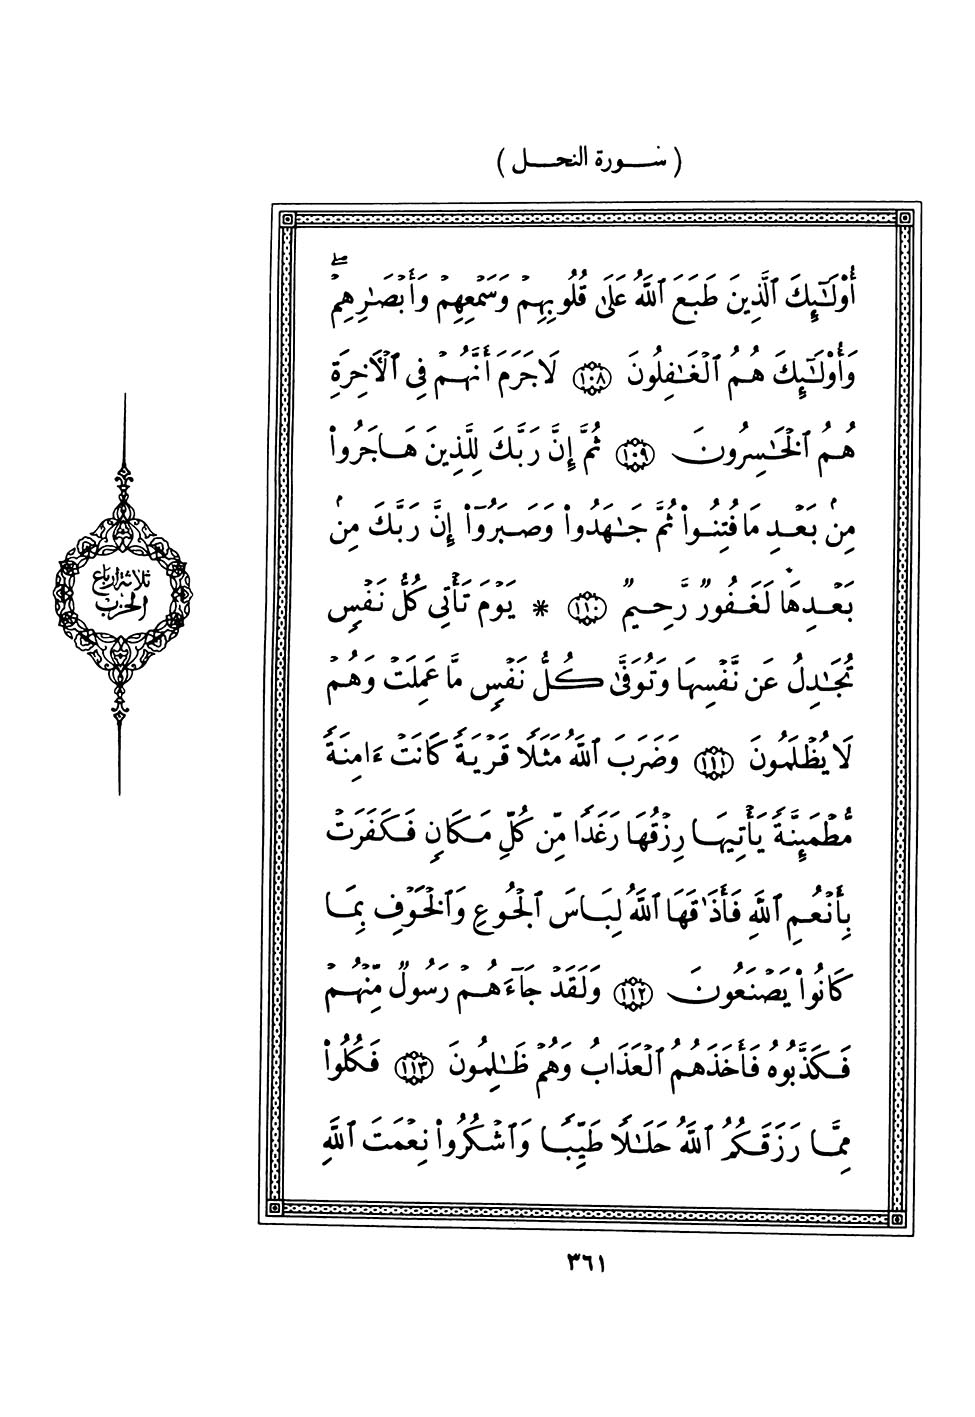 ( سورة النحل )
أُوْلَـٰٓئِكَ ٱلَّذِينَ طَبَعَ ٱللَّهُ عَلَىٰ قُلُوبِهِمْ وَسَمْعِهِمْ وَأَبْصَـٰرِهِمْ ۖ
وَأُوْلَـٰٓئِكَ هُمُ ٱلْغَـٰفِلُونَ ١٠٨ لَا جَرَمَ أَنَّهُمْ فِي ٱلْأَخِرَةِ
هُمُ ٱلْخَـٰسِرُونَ ١٠٩ ثُمَّ إِنَّ رَبَّكَ لِلَّذِينَ هَاجَرُواْ
مِنۢ بَعْدِ مَا فُتِنُواْ ثُمَّ جَـٰهَدُواْ وَصَبَرُوٓاْ إِنَّ رَبَّكَ مِنۢ
بَعْدِهَا لَغَفُورٌ رَّحِيمٌ ١١٠ * يَوْمَ تَأْتِي كُلُّ نَفْسٍ
تُجَـٰدِلُ عَن نَّفْسِهَا وَتُوَفَّىٰ كُلُّ نَفْسٍ مَّا عَمِلَتْ وَهُمْ
لَا يُظْلَمُونَ ١١١ وَضَرَبَ ٱللَّهُ مَثَلًا قَرْيَةً كَانَتْ ءَامِنَةً
مُّطْمَئِنَّةً يَأْتِيهَا رِزْقُهَا رَغَدًا مِّن كُلِّ مَكَانٍ فَكَفَرَتْ
بِأَنْعُمِ ٱللَّهِ فَأَذَٰقَهَا ٱللَّهُ لِبَاسَ ٱلْجُوعِ وَٱلْخَوْفِ بِمَا
كَانُواْ يَصْنَعُونَ ١١٢ وَلَقَدْ جَآءَهُمْ رَسُولٌ مِّنْهُمْ
فَكَذَّبُوهُ فَأَخَذَهُمُ ٱلْعَذَابُ وَهُمْ ظَـٰلِمُونَ ١١٣ فَكُلُواْ
مِمَّا رَزَقَكُمُ ٱللَّهُ حَلَـٰلًا طَيِّبًا وَٱشْكُرُواْ نِعْمَتَ ٱللَّهِ
ثلاثة أرباع
الحزب
٣٦١